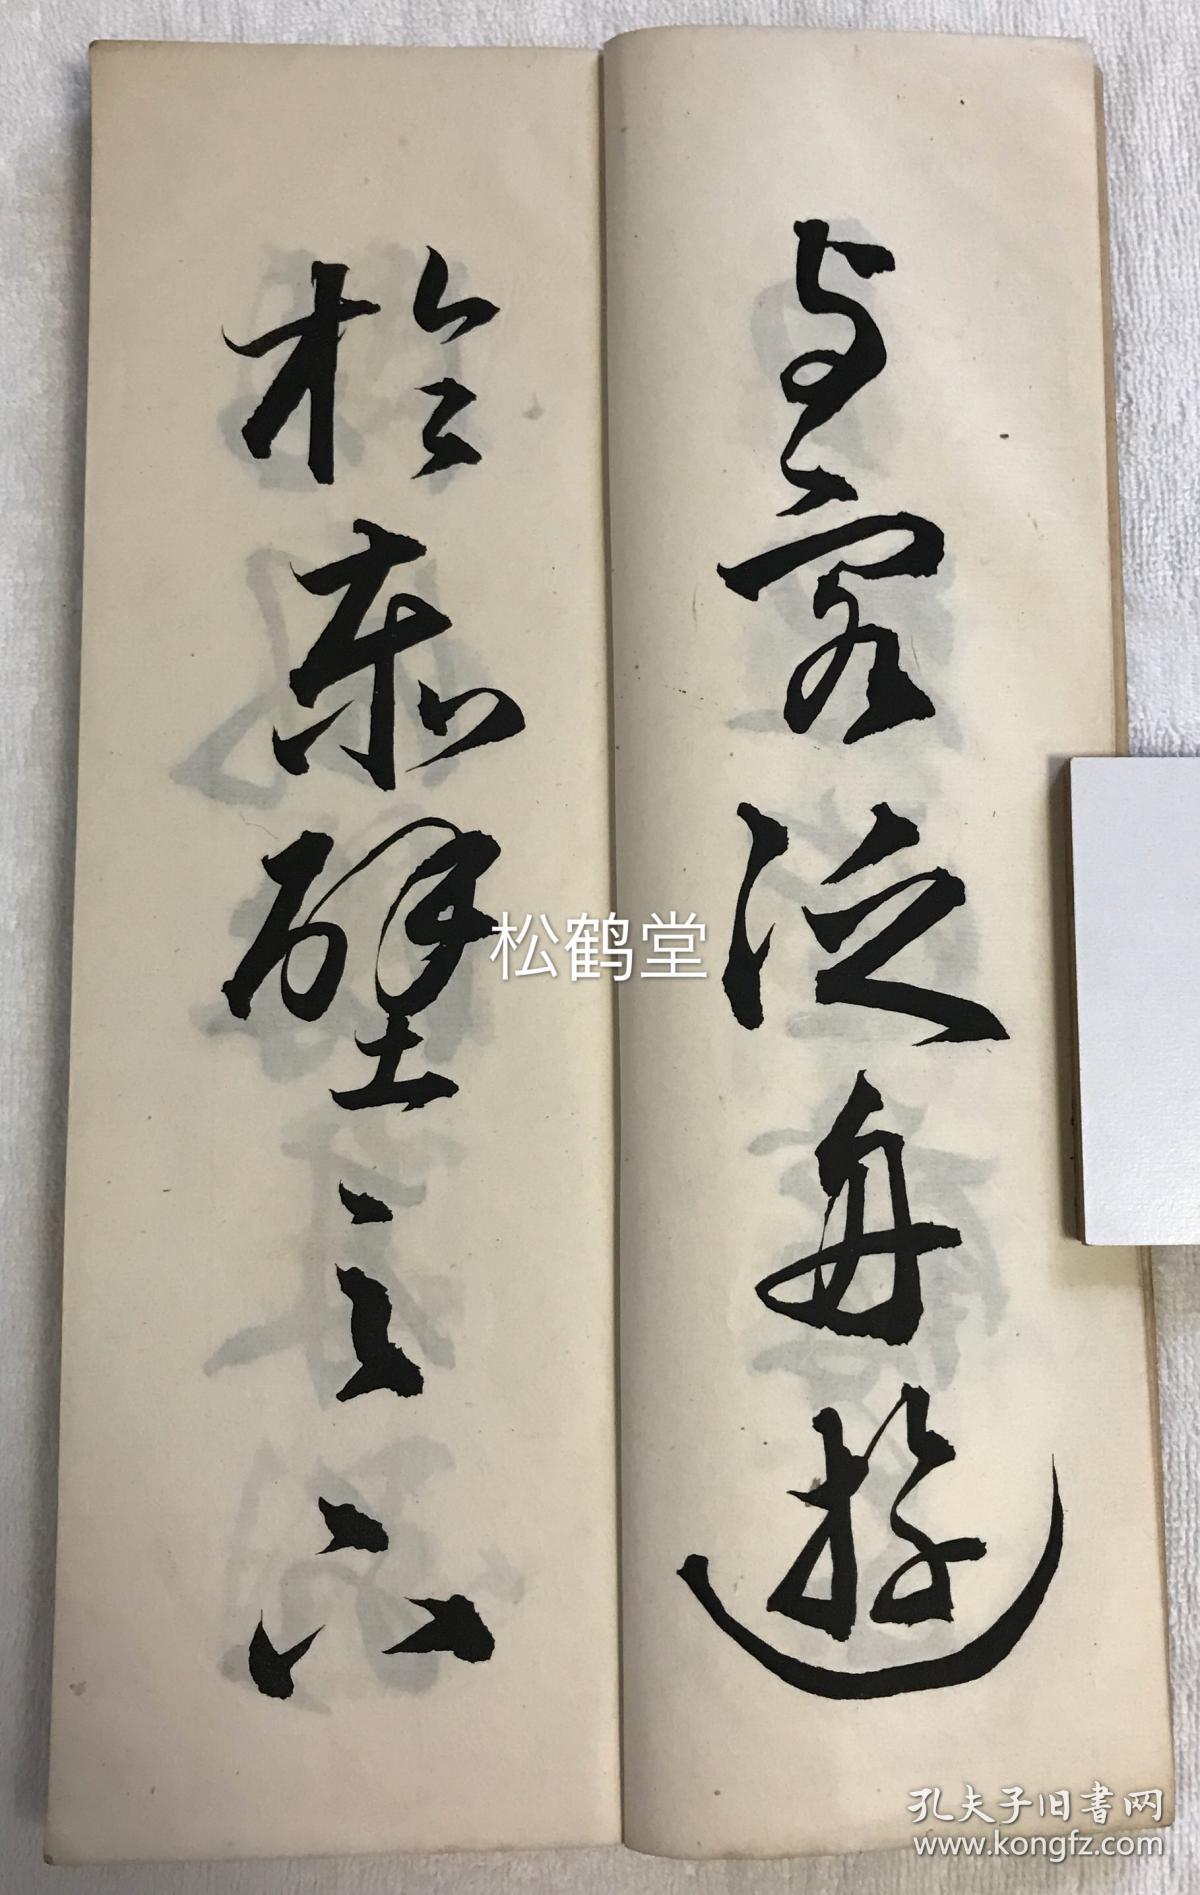 与客泛舟遊
於赤壁之下
松鹤堂
孔夫子旧書网
www.kongfz.com